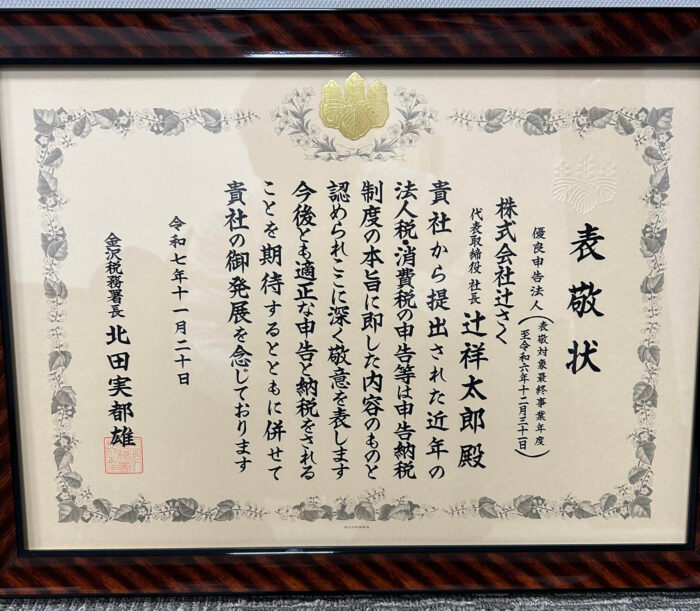 表敬状
優良申告法人(表敬対象最終事業年度
至令和六年十二月三十一日)
株式会社辻さく
代表取締役 社長 辻祥太郎殿
貴社から提出された近年の
法人税・消費税の申告等は申告納税
制度の本旨に即した内容のものと
認められここに深く敬意を表します
今後とも適正な申告と納税をされる
ことを期待するとともに併せて
貴社の御発展を念じております
令和七年十一月二十日
金沢税務署長 北田実都雄